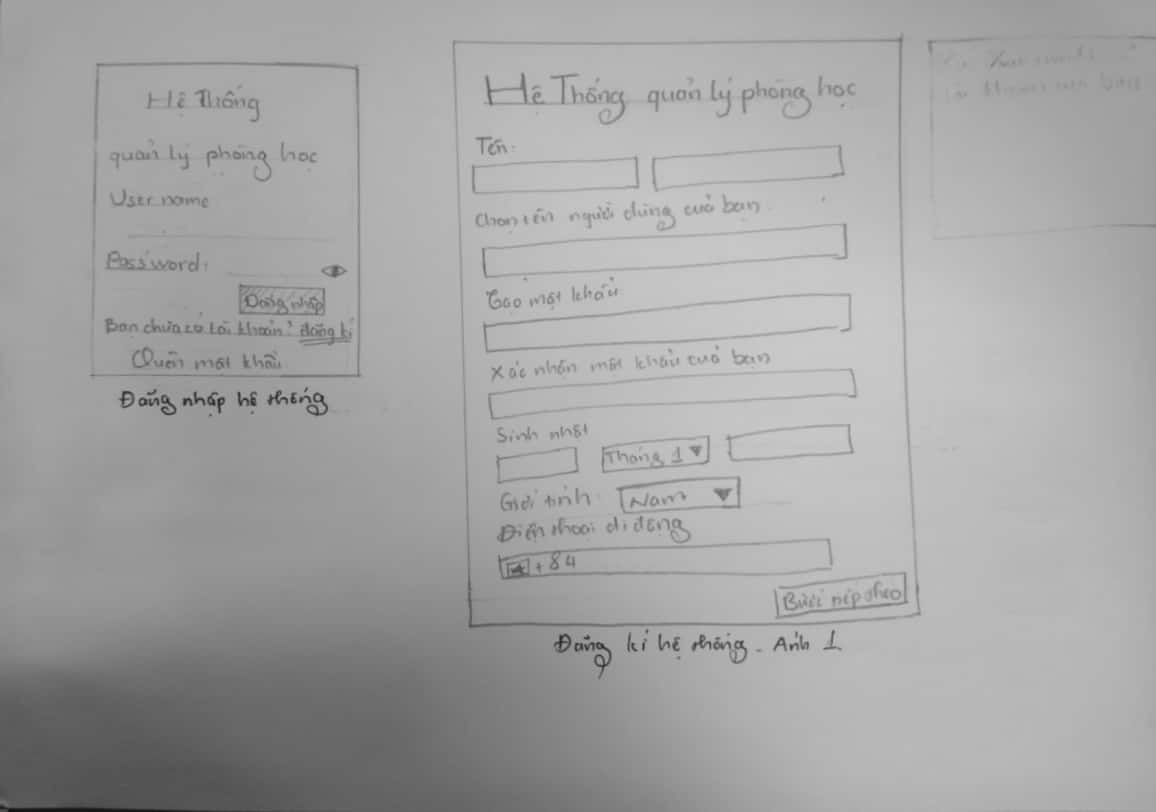 Hệ Thống
quản lý phòng học
User name
Password:
Đăng nhập
Bạn chưa có tài khoản? đăng kí
Quên mật khẩu
Đăng nhập hệ thống
Hệ Thống quản lý phòng học
Tên:
Chọn tên người dùng cuả bạn
Tạo mật khẩu
Xác nhận mật khẩu cuả bạn
Sinh nhật
Tháng 1
Giới tính: Nam
Điện thoại di động
+ 84
Bước tiếp theo
Đăng kí hệ thống - Ảnh 1